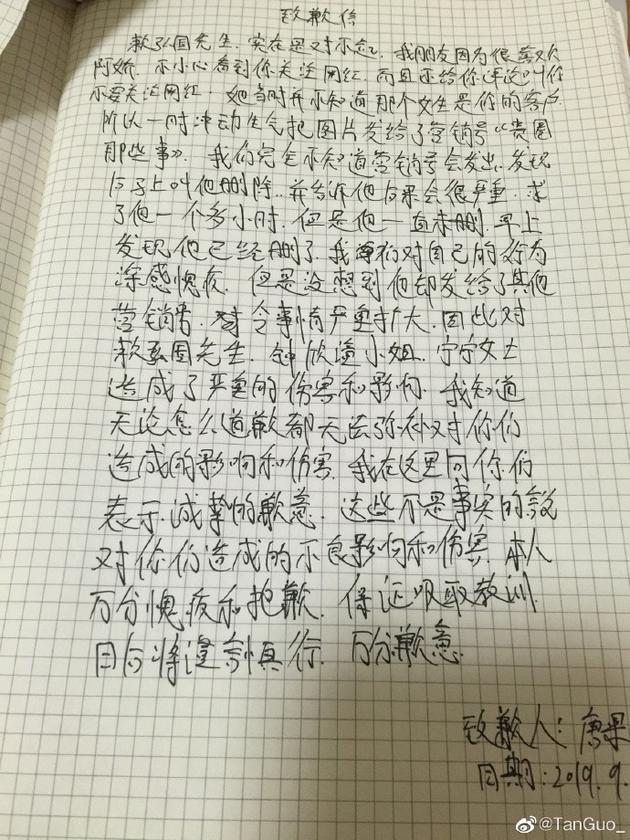 致歉信
赖弘国先生. 实在是对不起. 我朋友因为很喜欢
阿娇. 不小心看到你关注网红. 而且还给你评论叫你
不要关注网红. 她当时并不知道那个女生是你的客户
所以一时冲动生气把图片发给了营销号《贵圈
那些事》. 我们完全不知道营销号会发出. 发现
后马上叫他删除. 并告诉他后果会很严重. 求
了他一个多小时. 但是他一直未删. 早上
发现他已经删了. 我们对自己的行为
深感愧疚. 但是没想到他却发给了其他
营销号. 令事情严重扩大. 因此对
赖弘国先生. 钟欣潼小姐. 宁宁女士
造成了严重的伤害和影响. 我知道
无论怎么道歉都无法弥补对你们
造成的影响和伤害. 我在这里向你们
表示诚挚的歉意. 这些不是事实的言论
对你们造成的不良影响和伤害. 本人
万分愧疚和抱歉. 保证吸取教训.
日后将谨言慎行. 万分歉意.
致歉人: 唐果
日期: 2019.9.
@TanGuo_